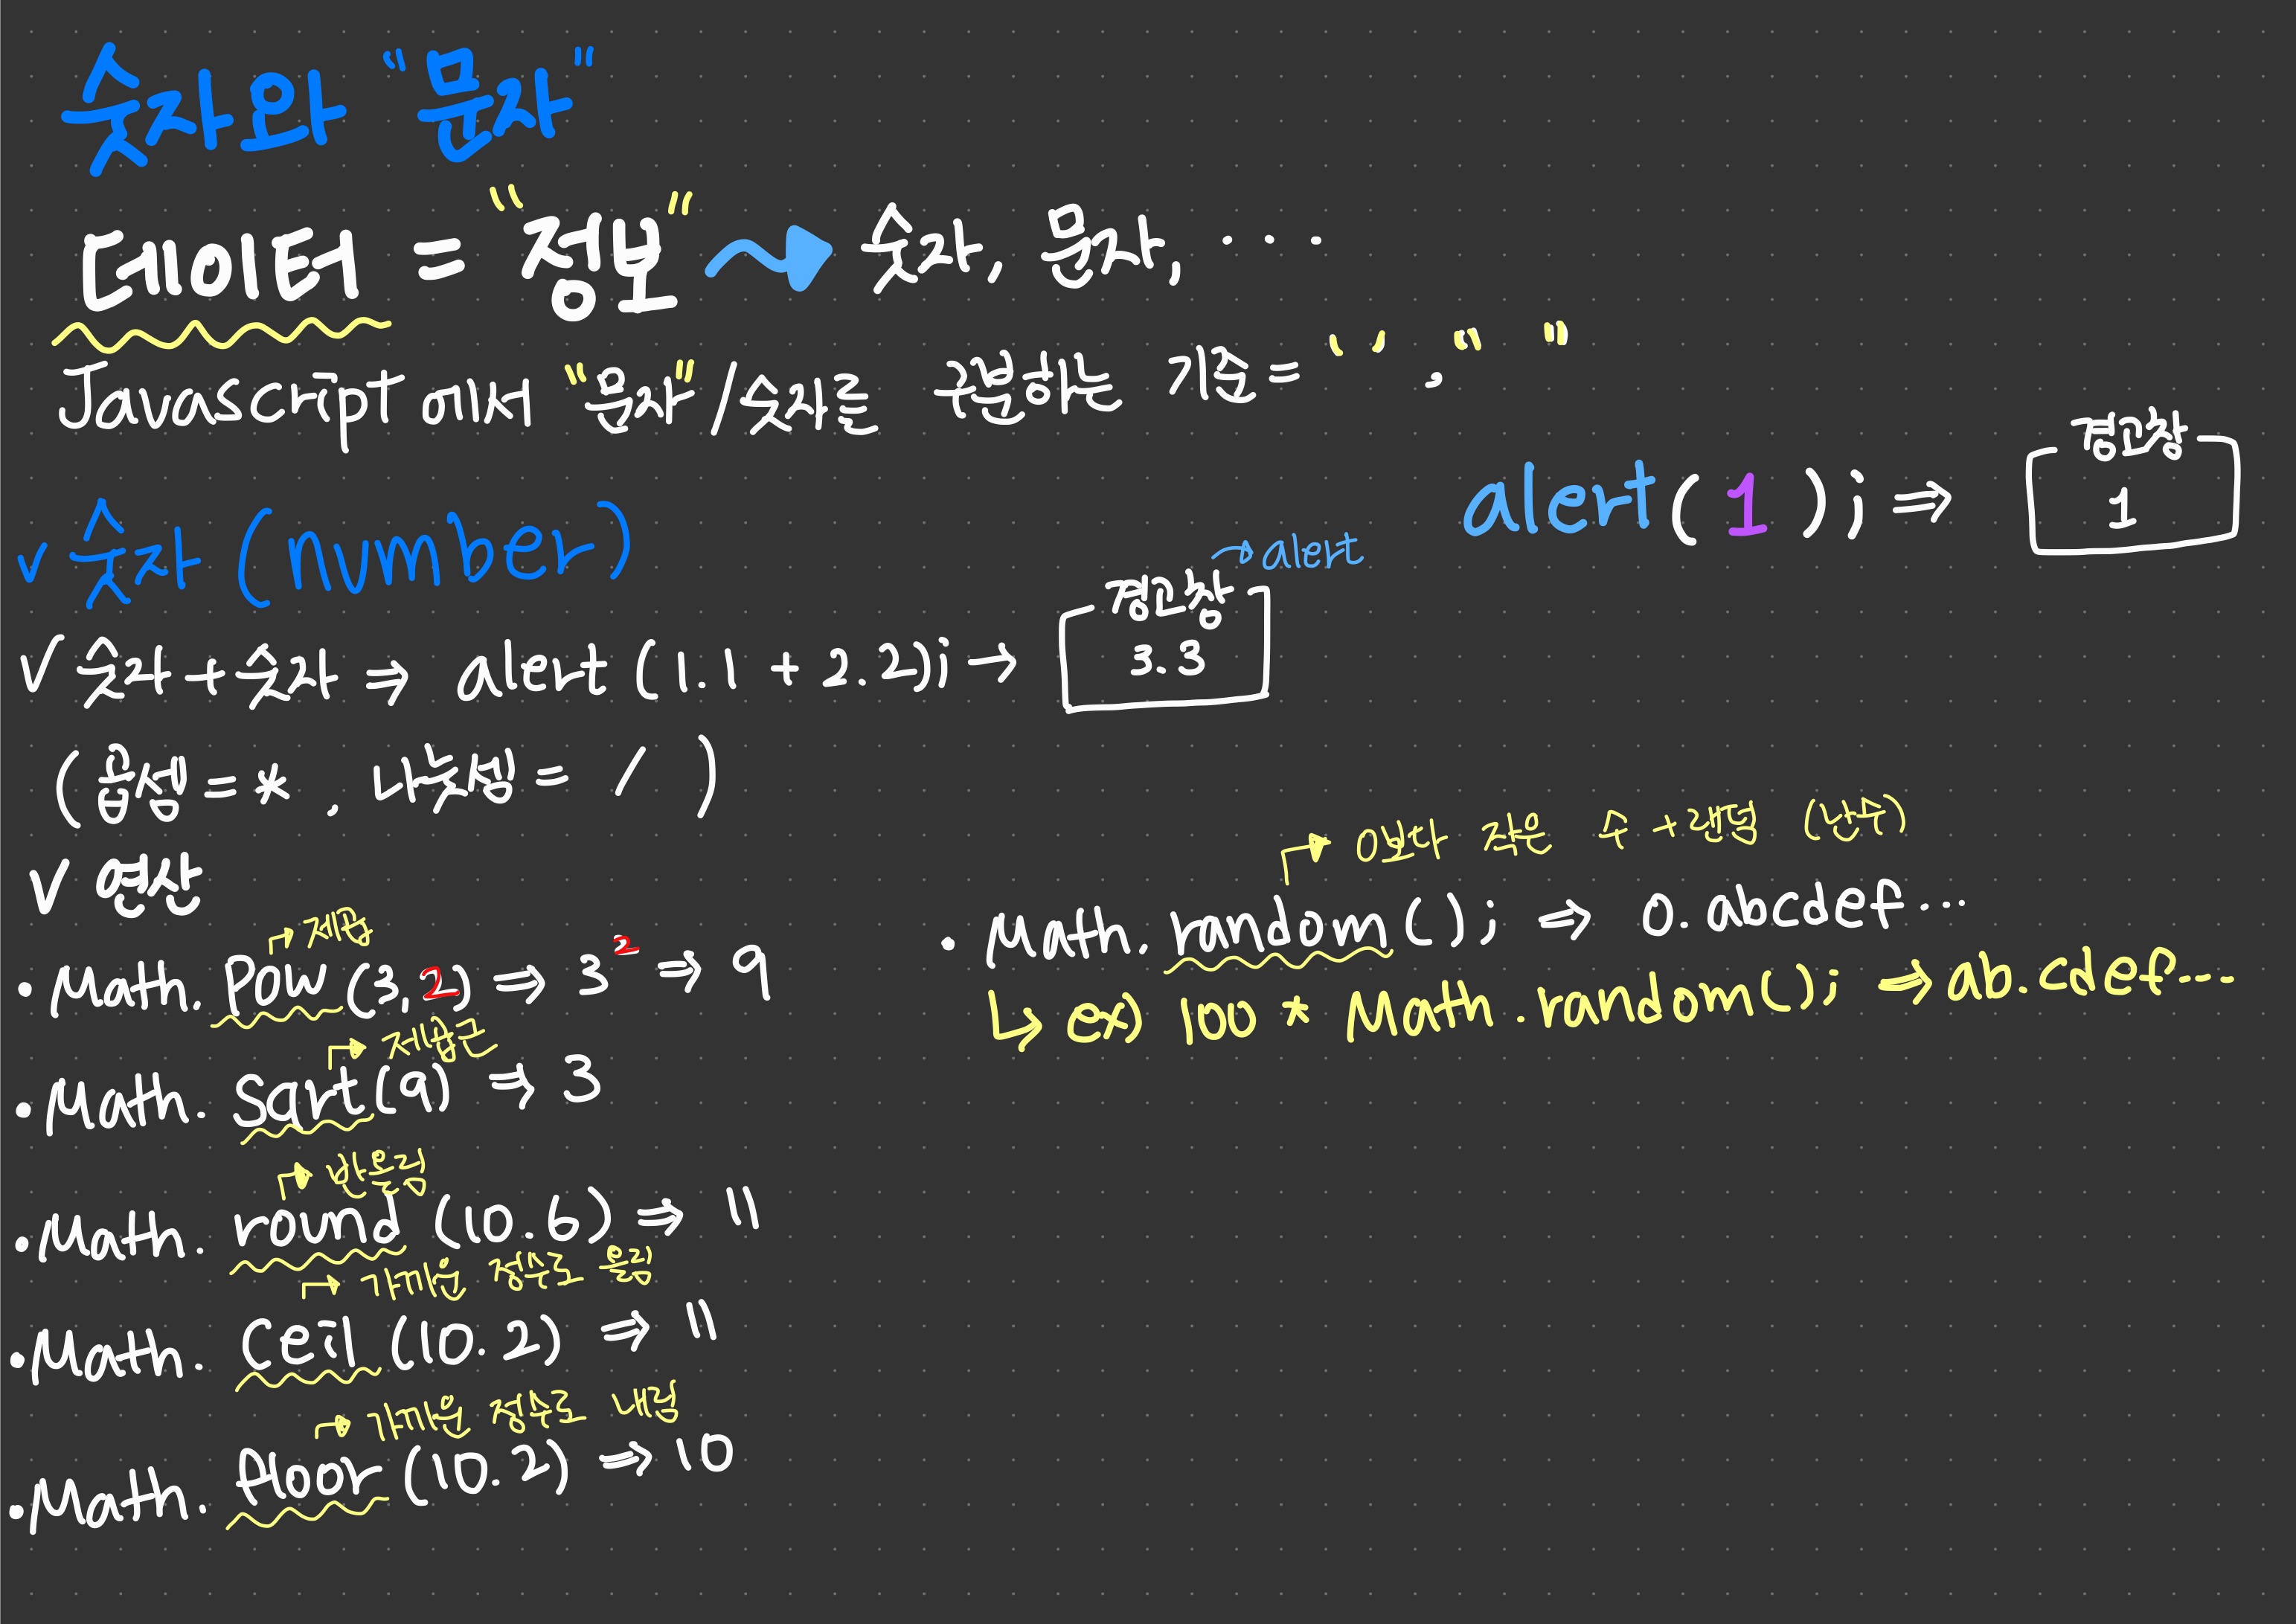 숫자와 "문자"
데이터 = "정보" → 숫자, 문자, ...
Javascript에서 "문자"/숫자를 구분하는 기준 = ' ', " "
alert(1); ⇒ 경고창 1
✓ 숫자 (number)
→ alert
✓ 숫자+숫자 ⇒ alert (1.1 + 2.2); → 경고창 3.3
(곱셈 = *, 나눗셈 = /)
✓ 연산
제곱
· Math. Pow (3,2) ⇒ 3² ⇒ 9
제곱근
· Math. Sqrt(9) ⇒ 3
반올림
· Math. round (10.6) ⇒ 11
가까운 정수로 올림
· Math. Ceil (10.2) ⇒ 11
가까운 정수로 내림
· Math. floor (10.2) ⇒ 10
→ 0보다 작은 수 + 랜덤 (난수)
· Math. random (); ⇒ 0.abcdef...
↳ ex) 100 * Math.random(); ⇒ ab.cdef...